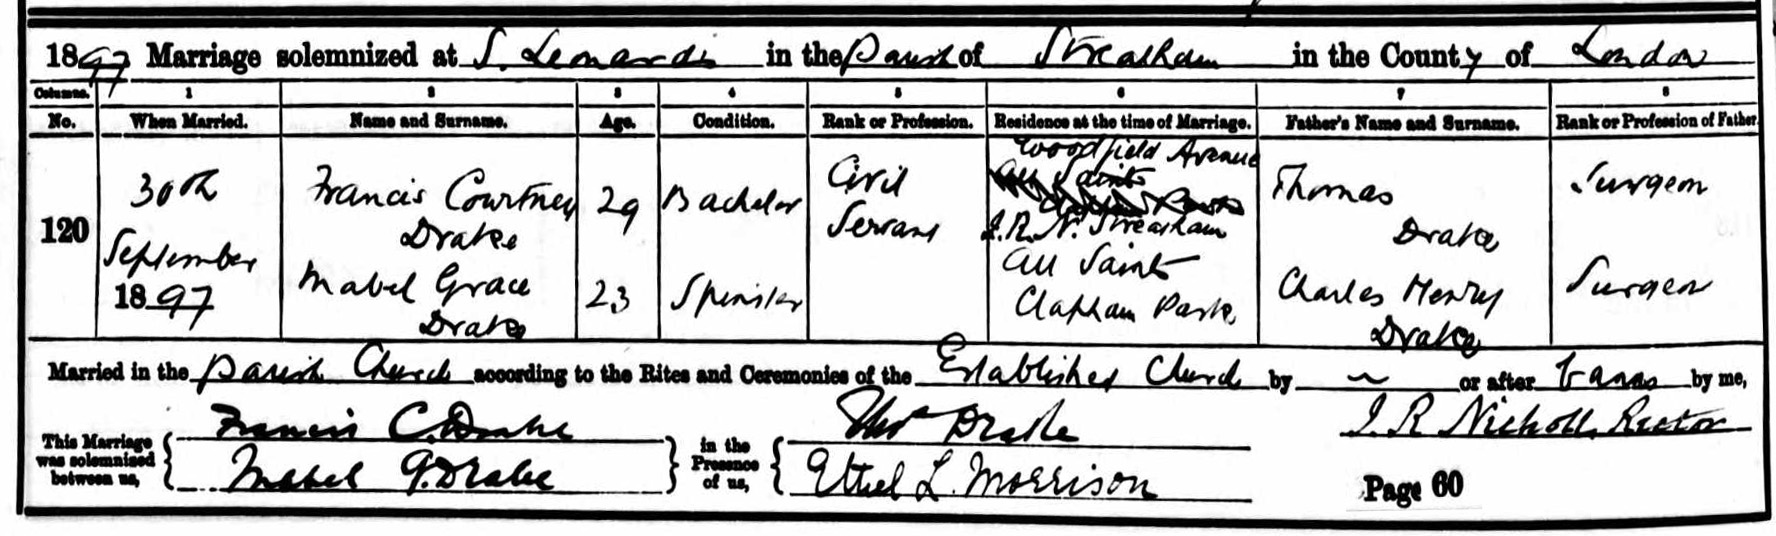 1897 Marriage solemnized at S. Leonards in the Parish of Streatham in the County of London
Columns. 1 2 3 4 5 6 7 8
No. When Married. Name and Surname. Age. Condition. Rank or Profession. Residence at the time of Marriage. Father's Name and Surname. Rank or Profession of Father.
120
30th
September
1897
Francis Courtney
Drake
29
Bachelor
Civil
Servant
Woodfield Avenue
All Saints
I.R.N. Streatham
Thomas
Drake
Surgeon
Mabel Grace
Drake
23
Spinster
All Saints
Clapham Park
Charles Henry
Drake
Surgeon
Married in the Parish Church according to the Rites and Ceremonies of the Established Church by ~ or after banns by me,
This Marriage was solemnized between us,
Francis C. Drake
Mabel G. Drake
in the Presence of us,
Thos Drake
Ethel L. Morrison
I. R. Nicholl, Rector
Page 60